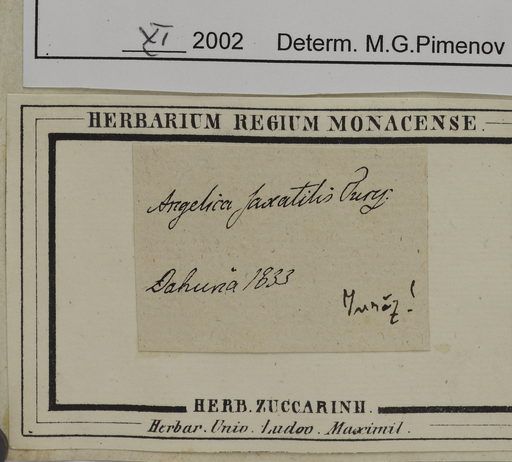 XI 2002 Determ. M.G.Pimenov
HERBARIUM REGIUM MONACENSE.
Angelica saxatilis Turcz.
Dahuria 1833
HERB. ZUCCARINII.
Herbar. Univ. Ludov. Maximil.